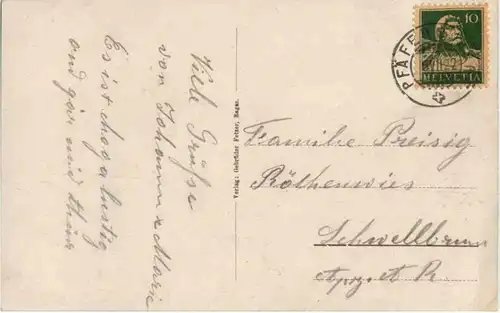 Viele Grüße
von Johann & Marie
Es ist choga lustig
and gär nüd
Verlag: Gebrüder Fetzer, Ragaz.
10
HELVETIA
PFÄFE
Familie Preisig
Röthenwies
Schwellbrunn
Apz. A R.